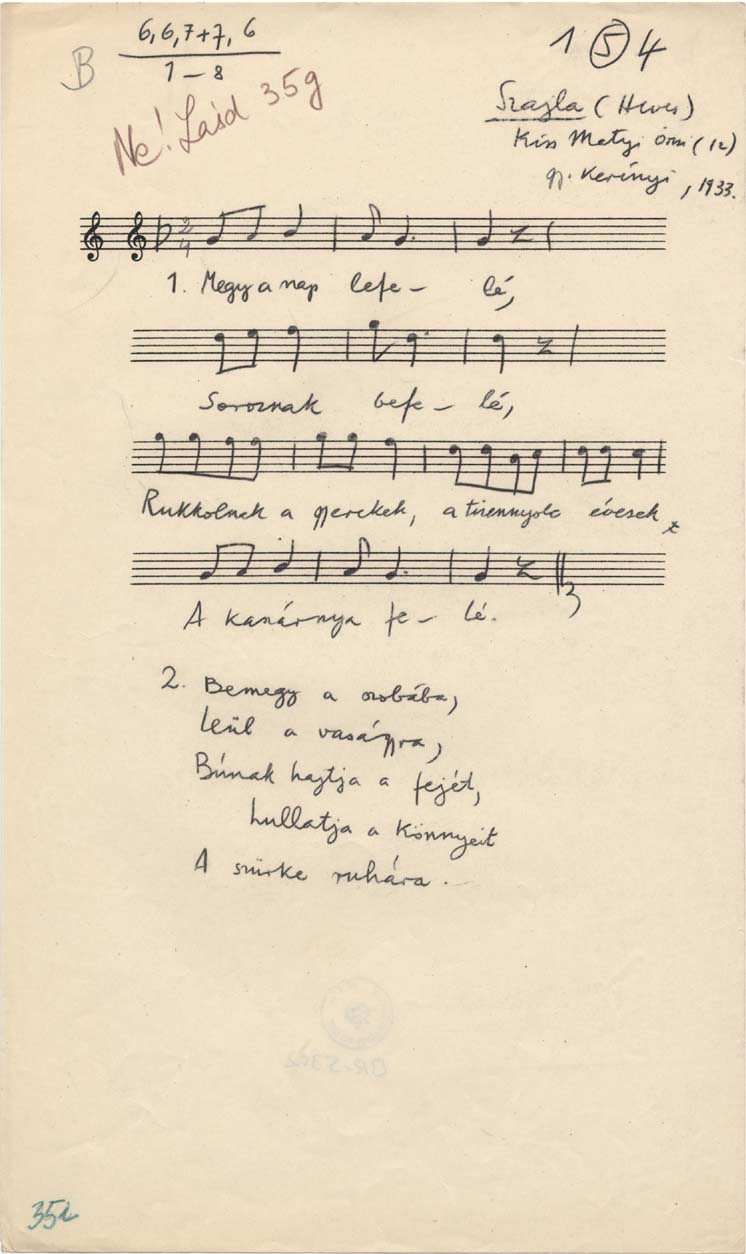 B
6, 6, 7+7, 6
1 – 8
Ne! Lásd 35g
1 (5) 4
Szajla (Heves)
Kiss Matyi Örzsi (12)
gy. Kerényi, 1933.
2/4
1. Megy a nap lefe – lé,
Soroznak befe – lé,
Rukkolnak a gyerekek, a tizennyolc évesek
A kanárnya fe – lé.
2. Bemegy a szobába,
Leül a vaságyra,
Búnak hajtja a fejét,
hullatja a könnyeit
A szürke ruhára.